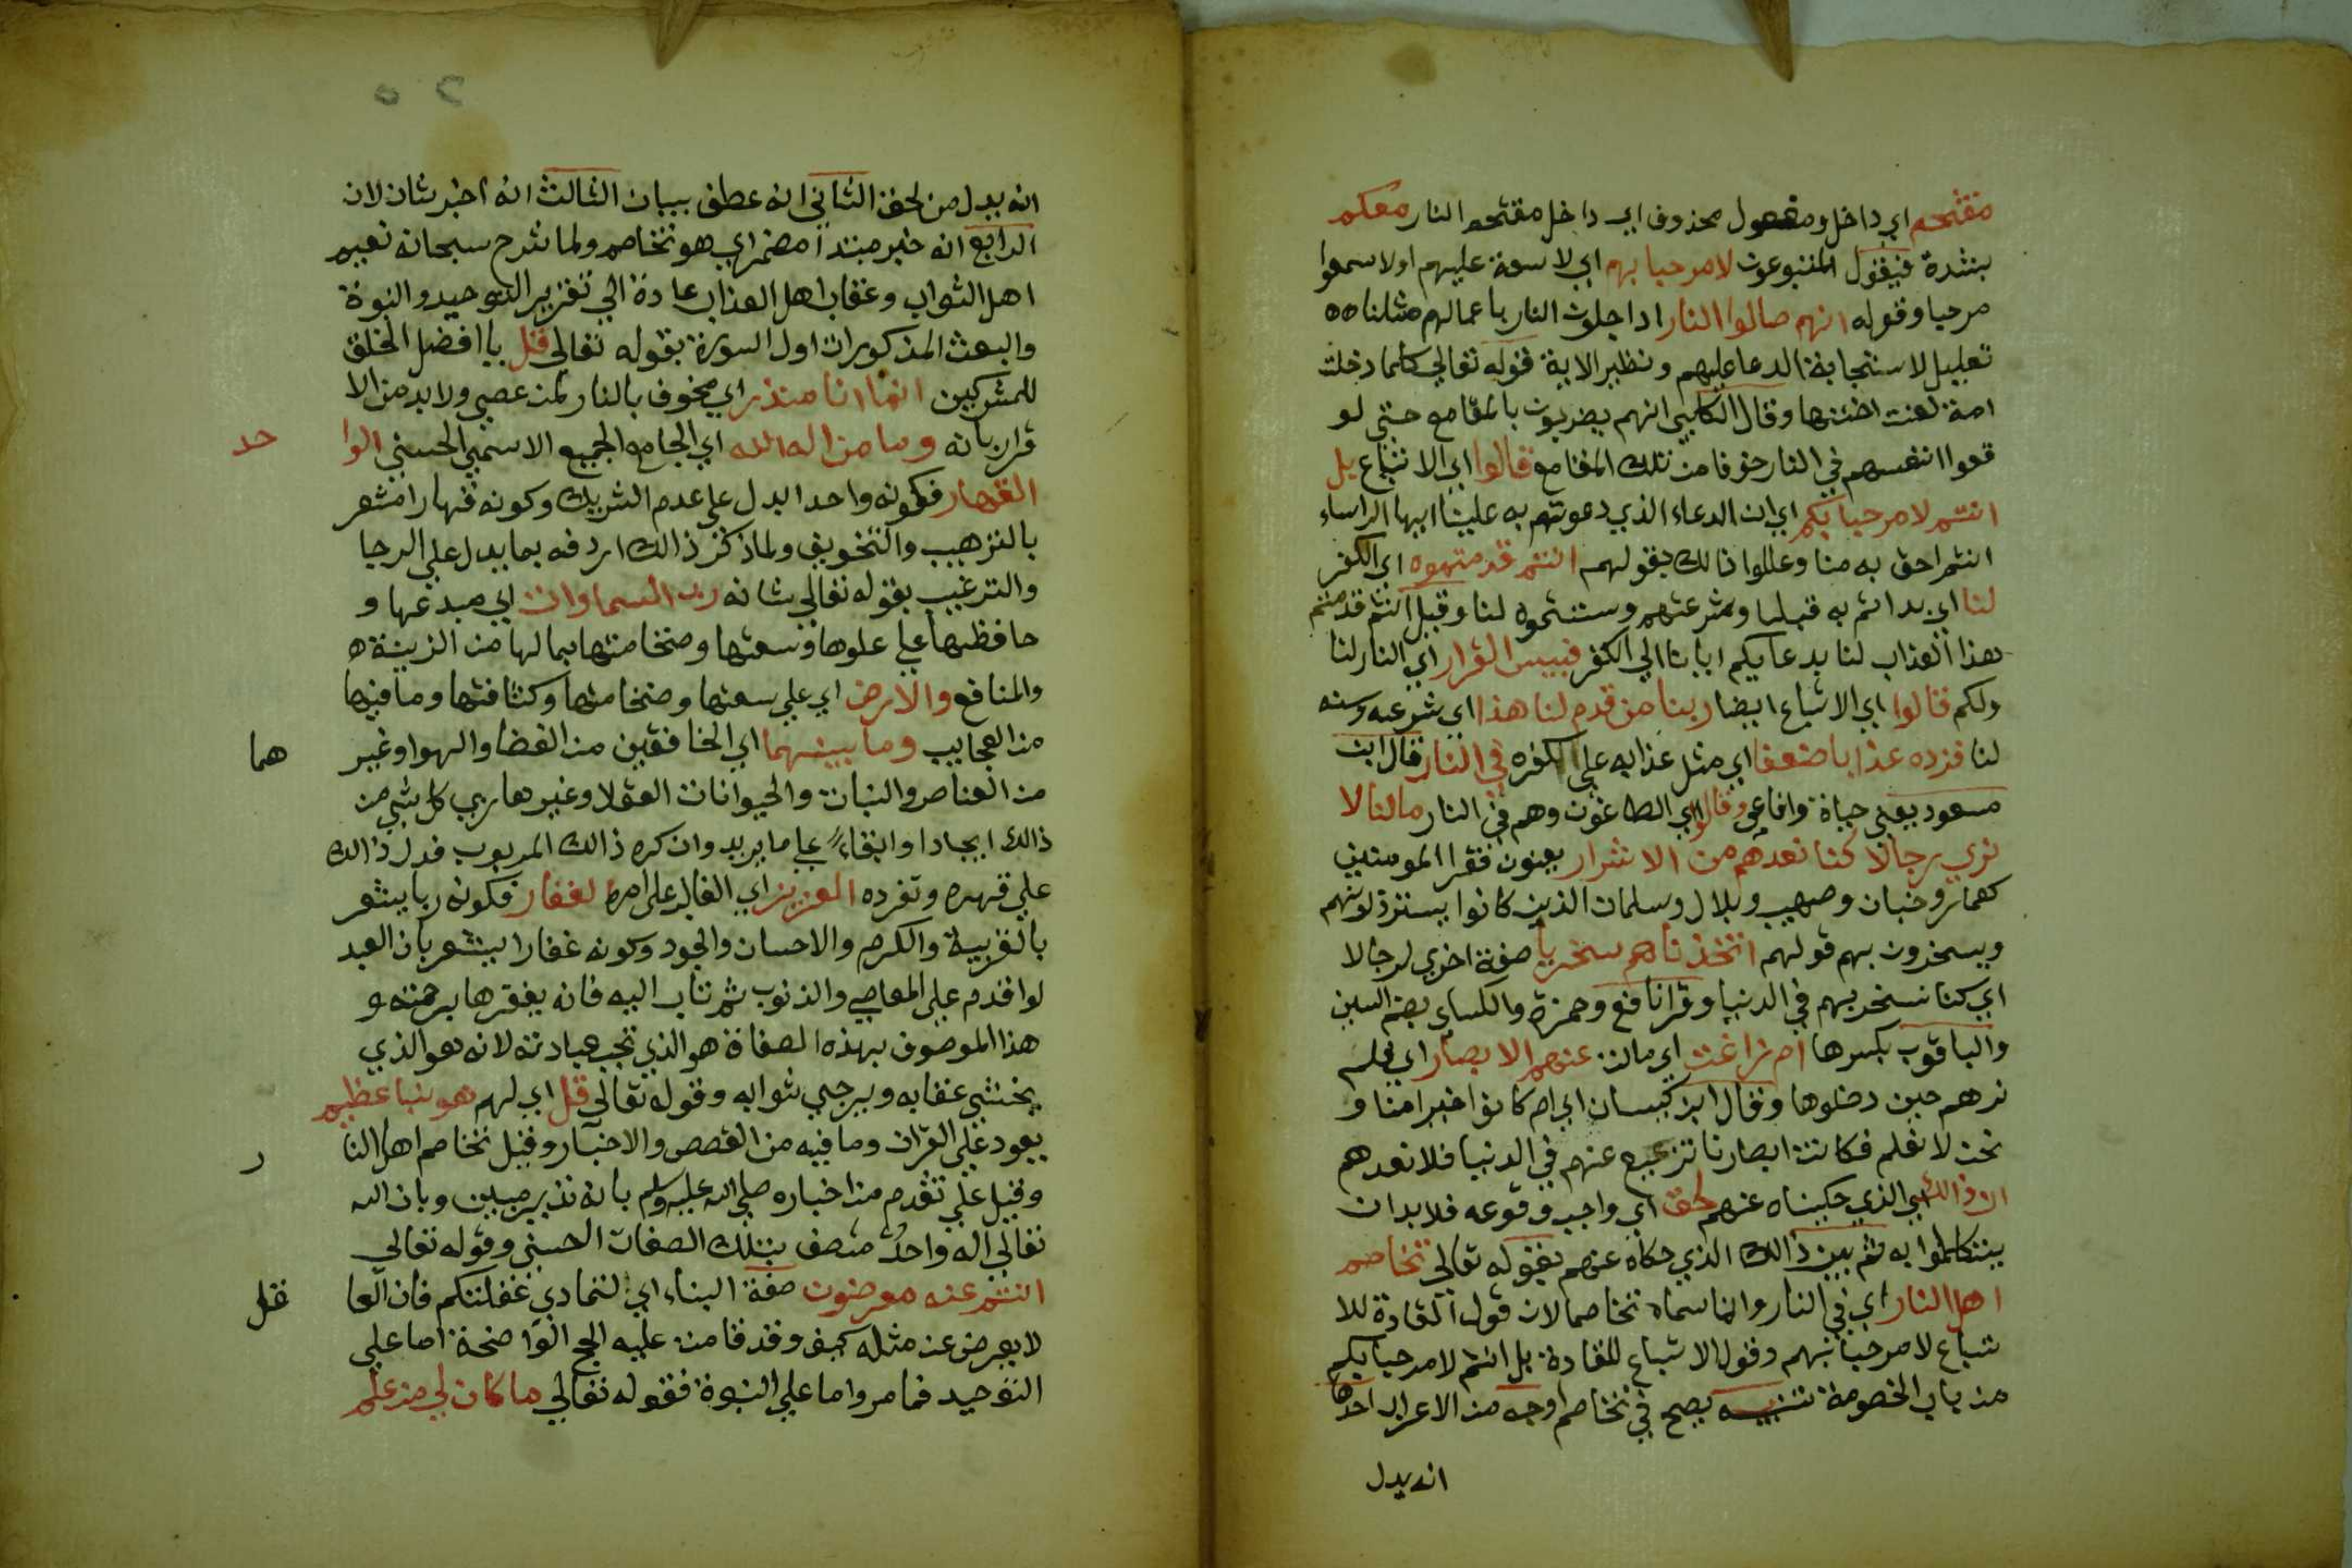 مقتحم اي داخل ومفعول محذوف اي داخل مقتحم النار معكم
بشدة فيقول المتبوعون لا مرحبا بهم اي لا سعة عليهم او لا سمعوا
مرحبا وقوله انهم صالوا النار اداخلون النار باعمالهم مثلنا ٥٥
تعليل لاستجابة الدعا عليهم ونظير الاية قوله تعالي كلما دخلت
امة لعنت اختها وقال الكلبي انهم يضربون بالمقامع حتي لو
قعوا انفسهم في النار خوفا من تلك المقامع قالوا اي الاتباع بل
انتم لا مرحبا بكم اي ان الدعاء الذي دعوتم به علينا ايها الراساء
انتم احق به منا وعللوا ذالك بقولهم انتم قدمتموه اي الكفر
لنا اي بداتم به قبلنا وشرعتهم وسننتموه لنا وقيل انتم قدمتم
هذا العذاب لنا بدعايكم ايانا الي الكفر فبيس القرار اي النار لنا
ولكم قالوا اي الاتباع ايضا ربنا من قدم لنا هذا اي شرعه وسنه
لنا فزده عذابا ضعفا اي مثل عذابه علي الكفره في النار قال ابن
مسعود يعني حياة وافاعي وقالوا اي الطاغون وهم في النار مالنا لا
نري رجالا كنا نعدهم من الاشرار يعنون فقرا المومنين
كعمار وخبان وصهيب وبلال وسلمان الذين كانوا يسترذلونهم
ويسخرون بهم قولهم اتخذناهم سخريا صفة اخري لرجالا
اي كنا نسخر بهم في الدنيا وقرا نافع وحمزة والكساي بضم السين
والباقون بكسرها ام زاغت اي مالت عنهم الابصار اي فلم
نرهم حين دخلوها وقال ابن كيسان اي ام كانوا خيرا منا و
نحن لا نعلم فكانت ابصارنا تزيغ عنهم في الدنيا فلا نعدهم
ان ذالك اي الذي حكيناه عنهم لحق اي واجب وقوعه فلا بد ان
يتكلموا به ثم بين ذالك الذي حكاه عنهم بقوله تعالي تخاصم
اهل النار اي في النار وانما سماه تخاصما لان قول القادة للا
تباع لا مرحبا بهم وقول الاتباع للقادة بل انتم لا مرحبا بكم
من باب الخصومة تنبيه يصح في تخاصم اوجه من الاعراب احدها
انه بدل
انه بدل من لحق الثاني انه عطف بيان الثالث انه اخبر ثان لان
الرابع انه خبر مبتدا مضمر اي هو تخاصم ولما شرح سبحانه نعيم
اهل الثواب وعقاب اهل العذاب عادة الي تقرير التوحيد والنبوة
والبعث المذكورات اول السورة بقوله تعالي قل يا افضل الخلق
للمشركين انما انا منذر اي مخوف بالنار لمن عصي ولا بد من الا
قرار بانه وما من اله الا الله اي الجامع لجميع الاسمي الحسني الوا
حد
القهار فكونه واحدا يدل علي عدم الشريك وكونه قهارا مشعر
بالترهيب والتخويف ولما ذكر ذالك اردفه بما يدل علي الرجا
والترغيب بقوله تعالي شانه رب السماوات اي مبدعها و
حافظها علي علوها وسعتها وضخامتها بما لها من الزينة ٥
والمنافع والارض اي علي سعتها وضخامتها وكثافتها وما فيها
من العجايب وما بينهما اي الخافقين من الفضا والهوا وغير
هما
من العناصر والنبات والحيوانات العقلا وغيرها ربي كل شي من
ذالك ايجادا وابقاء علي ما يريد وان كره ذالك المربوب فدل ذالك
علي قهره وتفرده العزيز اي الغالب علي امره الغفار فكونه ربا يشعر
بالتربية والكرم والاحسان والجود وكونه غفارا يشعر بان العبد
لو اقدم علي المعاصي والذنوب ثم تاب اليه فانه يغفرها برحمته و
هذا الموصوف بهذه الصفاة هو الذي تجب عبادته لانه هو الذي
يخشي عقابه ويرجي ثوابه وقوله تعالي قل اي لهم هو نبا عظيم
يعود علي القران وما فيه من القصص والاخبار وقيل تخاصم اهل النا
ر
وقيل علي تقدم من اخباره صلي الله عليه وسلم بانه نذير مبين وبان الله
تعالي اله واحد متصف بتلك الصفات الحسني وقوله تعالي
انتم عنه معرضون صفة النباء اي لتمادي غفلتكم فان العا
قل
لا يعرض عن مثله كيف وقد قامت عليه الحجج الواضحة اما علي
التوحيد فما مر واما علي النبوة فقوله تعالي ما كان لي من علم